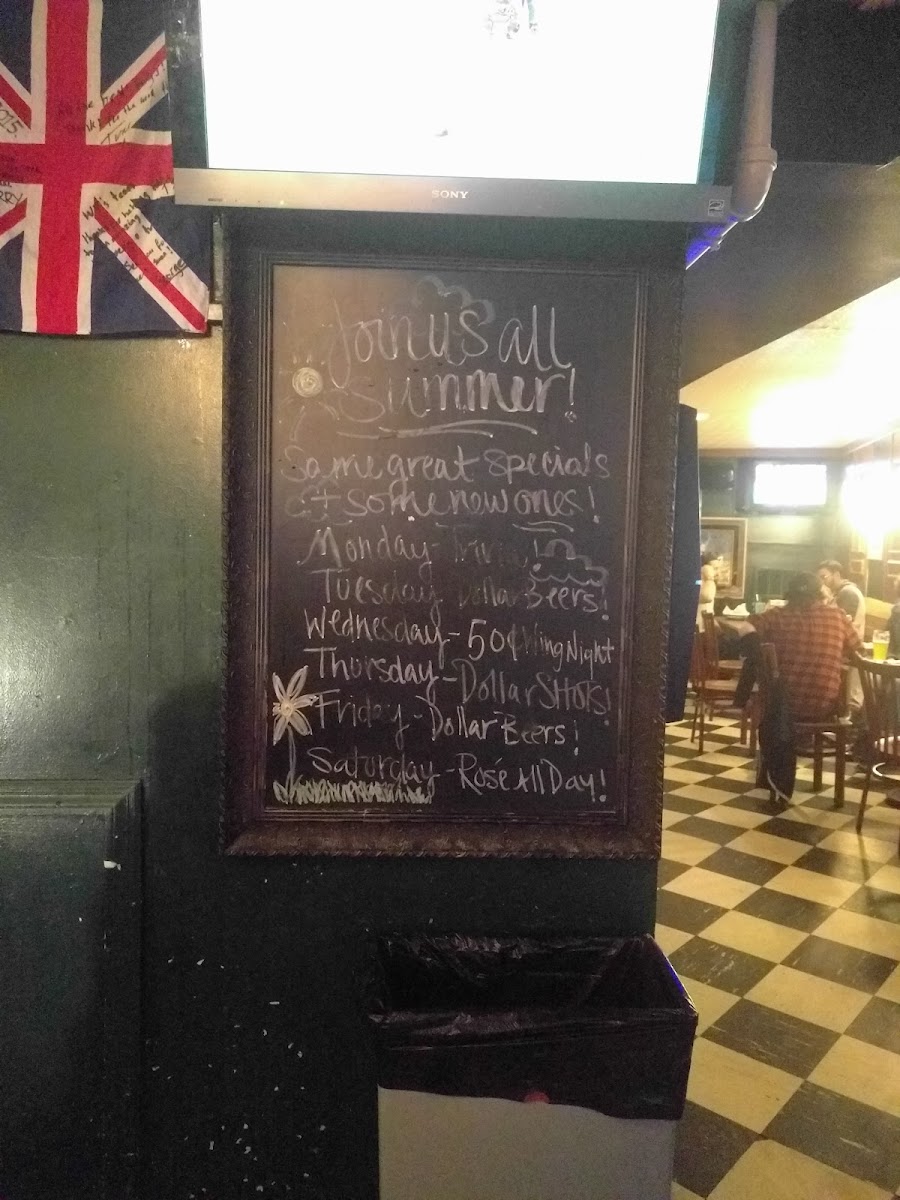 SONY
Join us all
Summer!
Same great specials
+ some new ones!
Monday - Trivia!
Tuesday Dollar Beers!
Wednesday - 50¢ Wing Night
Thursday - Dollar SHOTS!
Friday - Dollar Beers!
Saturday - Rosé All Day!